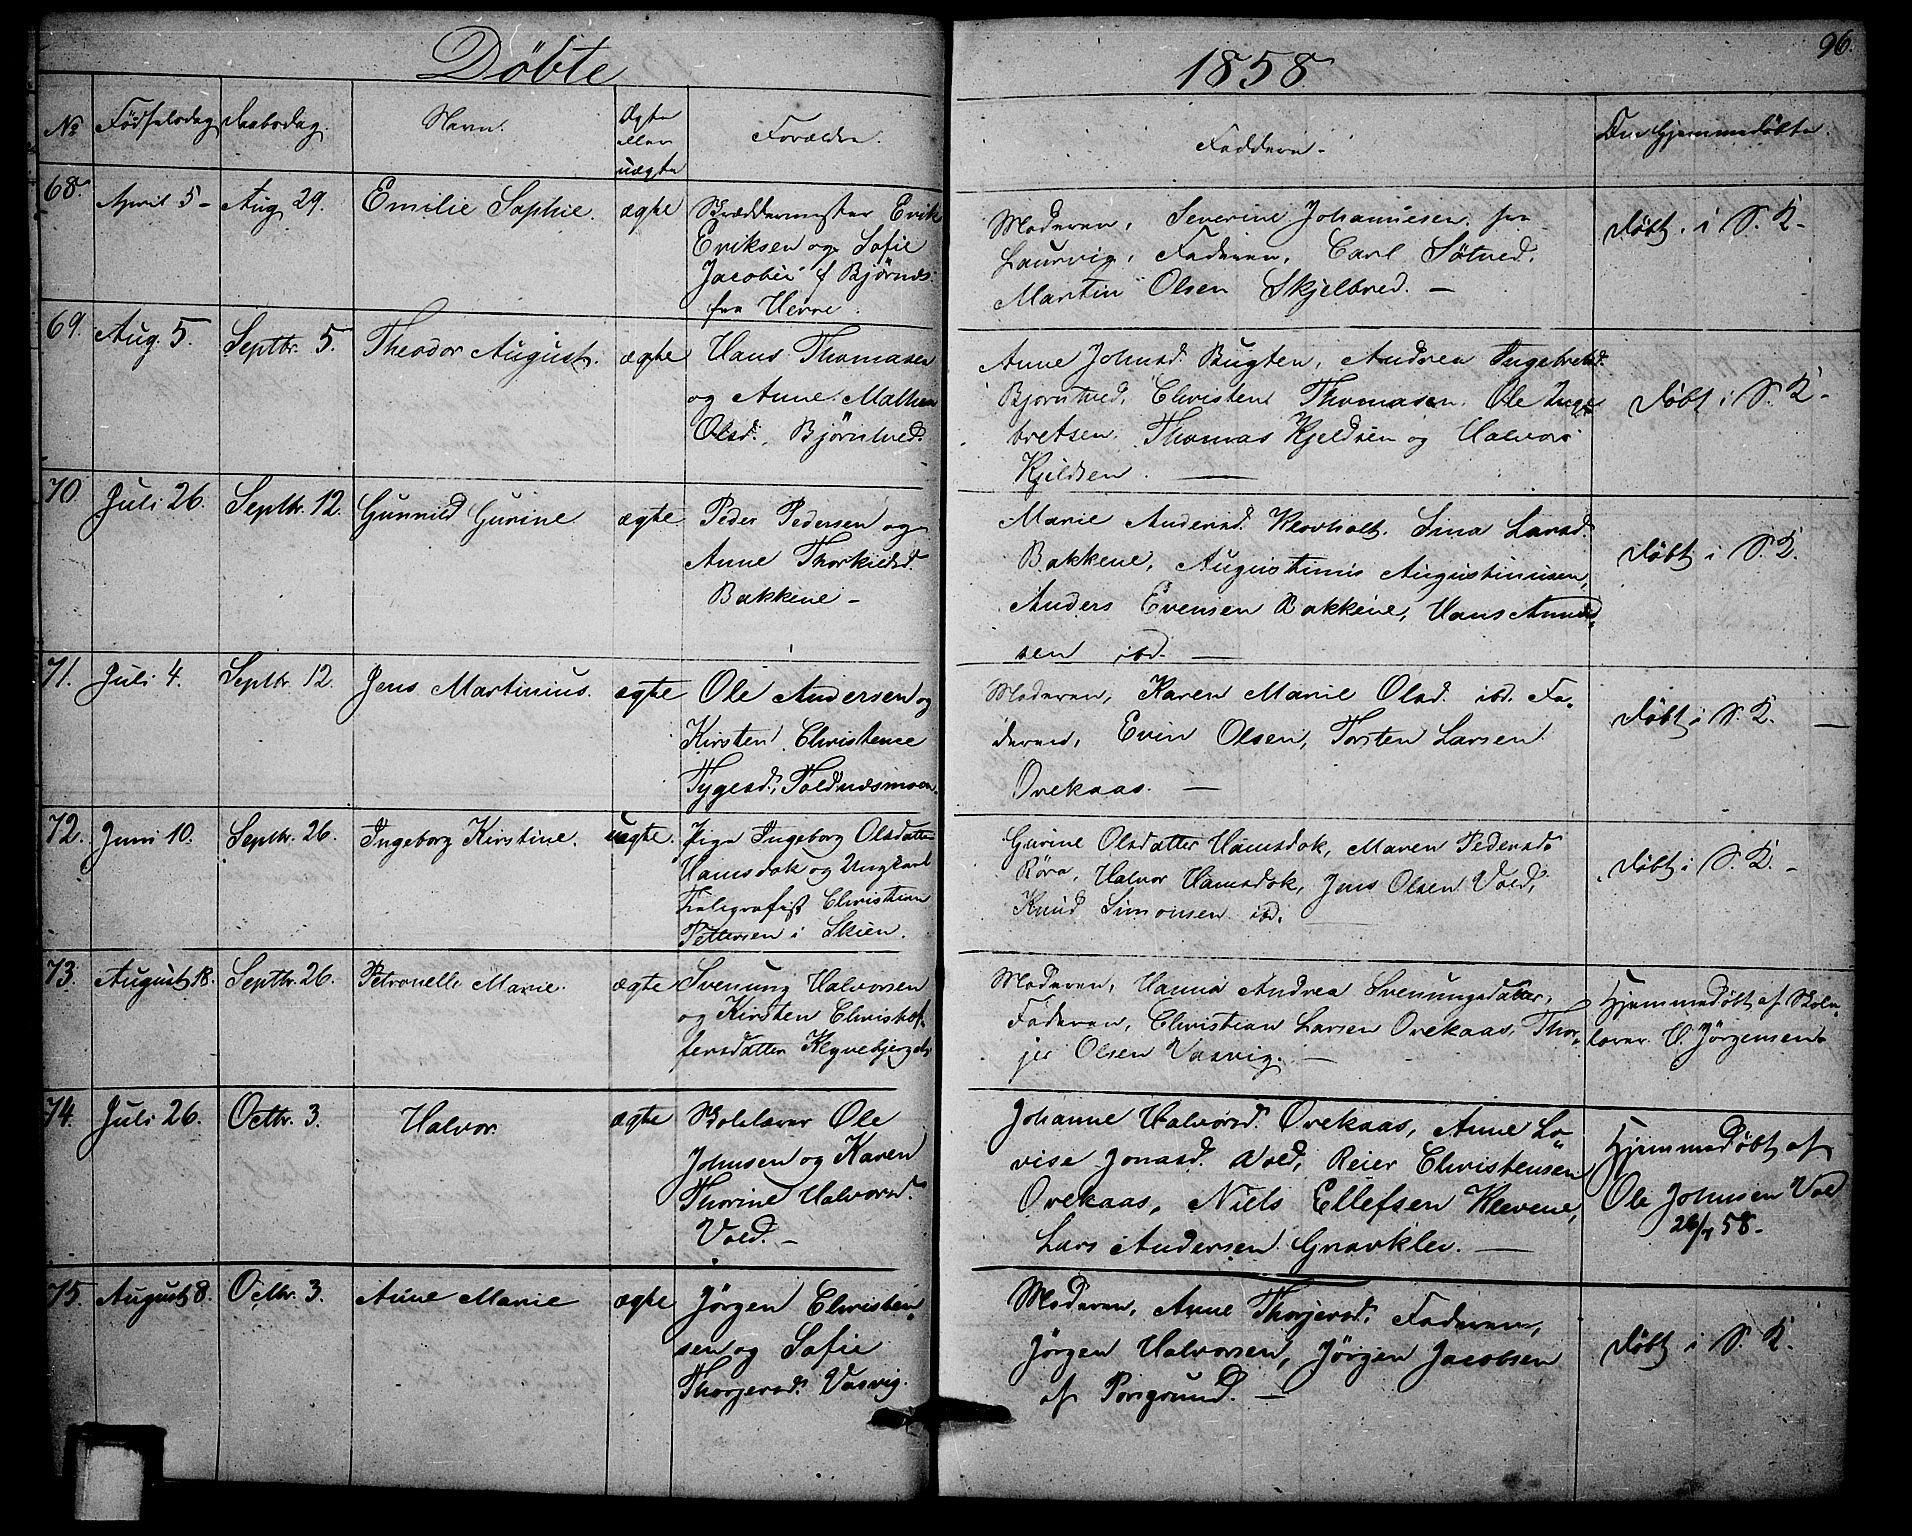 Døbte
1858
96.
No
Fødselsdag
Daabsdag.
Navn.
Ægte
eller
uægte
Forældre.
Faddere.
Om hjemmedøbte.
68.
April 5 -
Aug 29.
Emilie Sophie.
ægte
Skræddermester Erik
Eriksen og Sofie
Jacobie f Bjørnds:
fra Herre.
Moderen, Severine Johannesen fra
Laurvig, Faderen, Carl Søtved,
Martin Olsen Skjelbred. —
døbt. i S. K -
69.
Aug. 5.
Septbr. 5.
Theodor August.
ægte
Hans Thomasen
og Anne Mathea
Olsd. Bjørntved.
Anne Johnsd. Bugten, Andrea Ingebretsd.
Bjorntved, Christen Thomasen, Ole Inge-
bretsen, Thomas Kjeldsen og Halvor
Kjeldsen. —
døbt i S. K -
70
Juli 26.
Septbr. 12.
Gunnild Gurine
ægte
Peder Pedersen og
Anne Thorkildsd.
Bakkene -
Marie Andersd. Klovholt. Sina Larsd.
Bakkene, Augustinus Augustinusen,
Anders Evensen Bakkene, Hans Amund-
sen ibd. —
døbt i S. K.
71.
Juli 4.
Septbr. 12.
Jens Martinius.
ægte
Ole Andersen og
Kirsten Christence
Tygesd., Toldnæsmoen.
Moderen, Karen Marie Olsd. ibd. Fa-
deren, Evin Olsen, Torsten Larsen
Ovekaas. —
døbt i S. K. —
72.
Juni 10.
Septbr. 26.
Ingeborg Kirstine.
uægte.
Pige Ingeborg Olsdatter
Hamsdok og Ungkarl
Christian
Pettersen i Skien.
Gurine Olsdatter Hamsdok, Maren Pedersd.
Røra, Halvor Hamsdok, Jens Olsen Vold,
Knud Simonsen ibd.
døbt i S. K. -
73.
August 18.
Septbr. 26.
Petronelle Marie.
ægte
Svenung Halvorsen
og Kirsten Christof-
fersdatter Klyvebjerget.
Moderen, Hanna Andrea Svenungsdatter,
Faderen, Christian Larsen Ovekaas, Thor-
jer Olsen Vasvig. —
Hjemmedøbt af Skole-
lærer H. Jørgensen.
74.
Juli 26.
Octbr. 3.
Halvor.
ægte
Skolelærer Ole
Johnsen og Karen
Thorine Halvorsd.
Vold. -
Johanne Halvorsd. Ovekaas, Anne Lo-
vise Jonasd. Vold, Reier Christensen
Ovekaas, Niels Ellefsen Klevene,
Lars Andersen Gravklev. —
Hjemmedøbt af
Ole Johnsen Vold
26/7 58 -
75.
August 8.
Octbr. 3.
Anne Marie
ægte
Jørgen Christen-
sen og Sofie
Thorjersd. Vasvig.
Moderen, Anne Thorjersd. Faderen,
Jørgen Halvorsen, Jørgen Jacobsen
af Porsgrund. —
døbt i S. K.